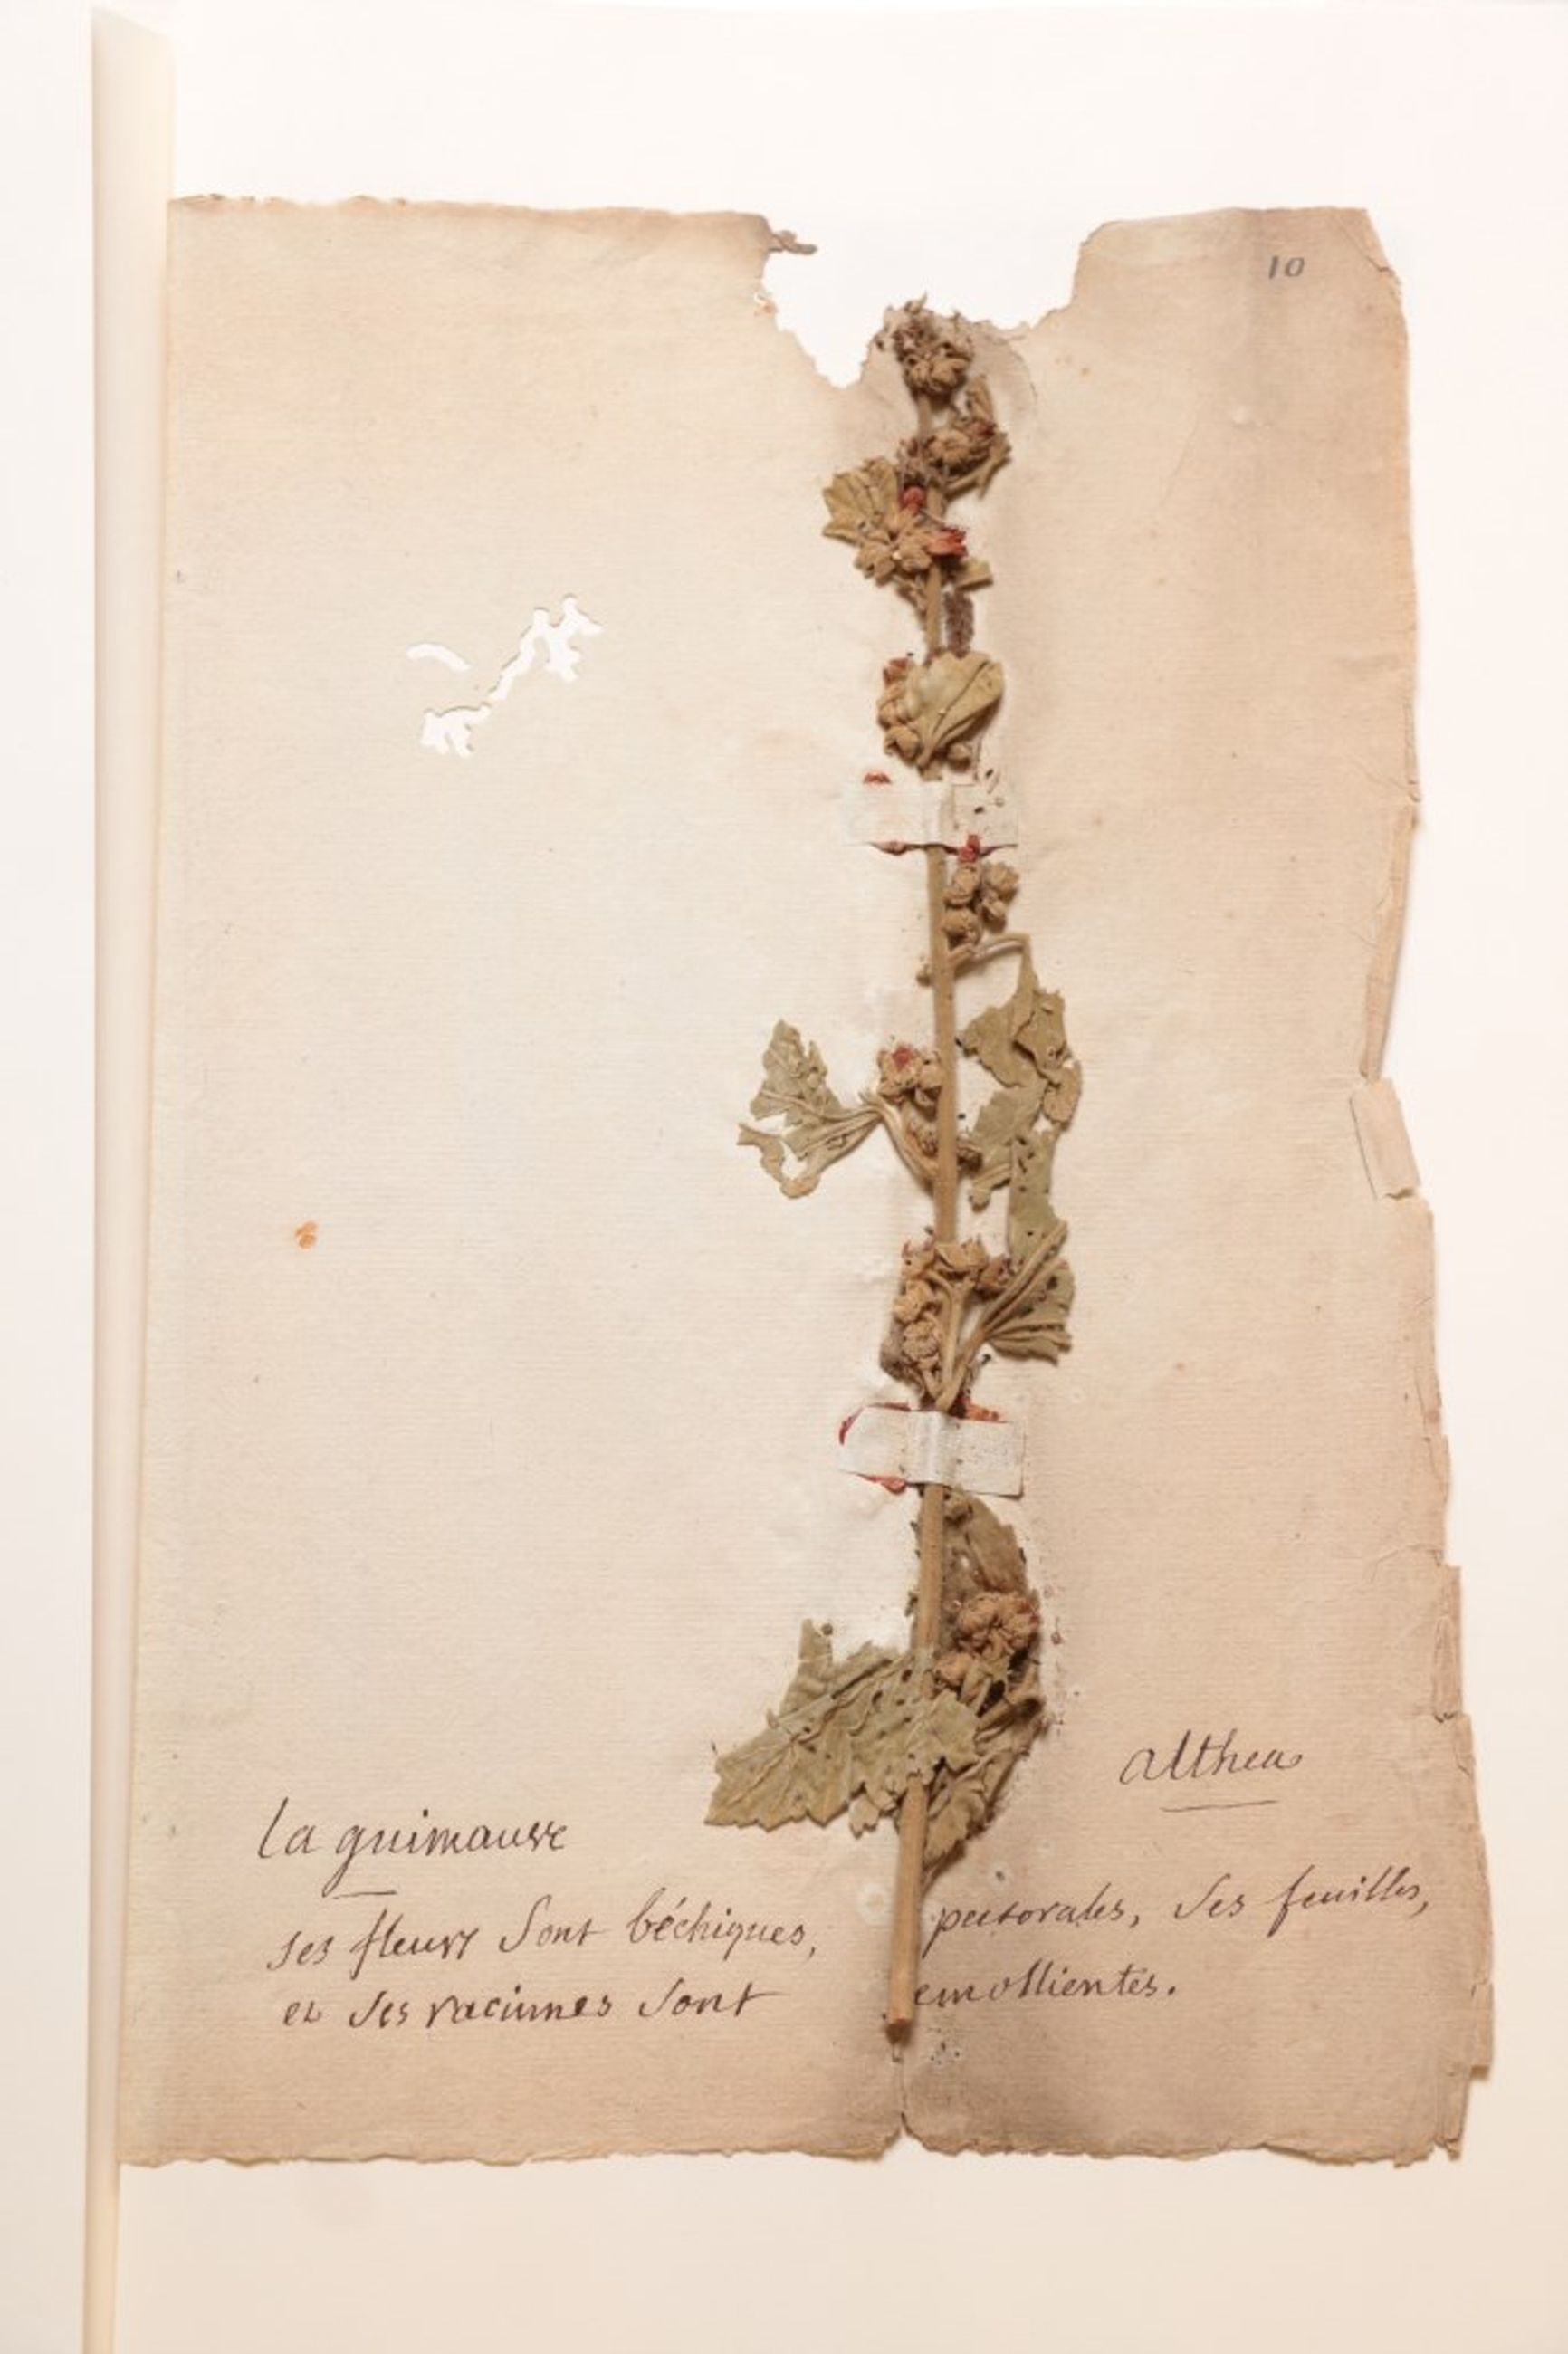 10
althea
la guimauve
ses fleurs sont béchiques, pectorales, ses feuilles,
et ses racinnes sont emollientes.